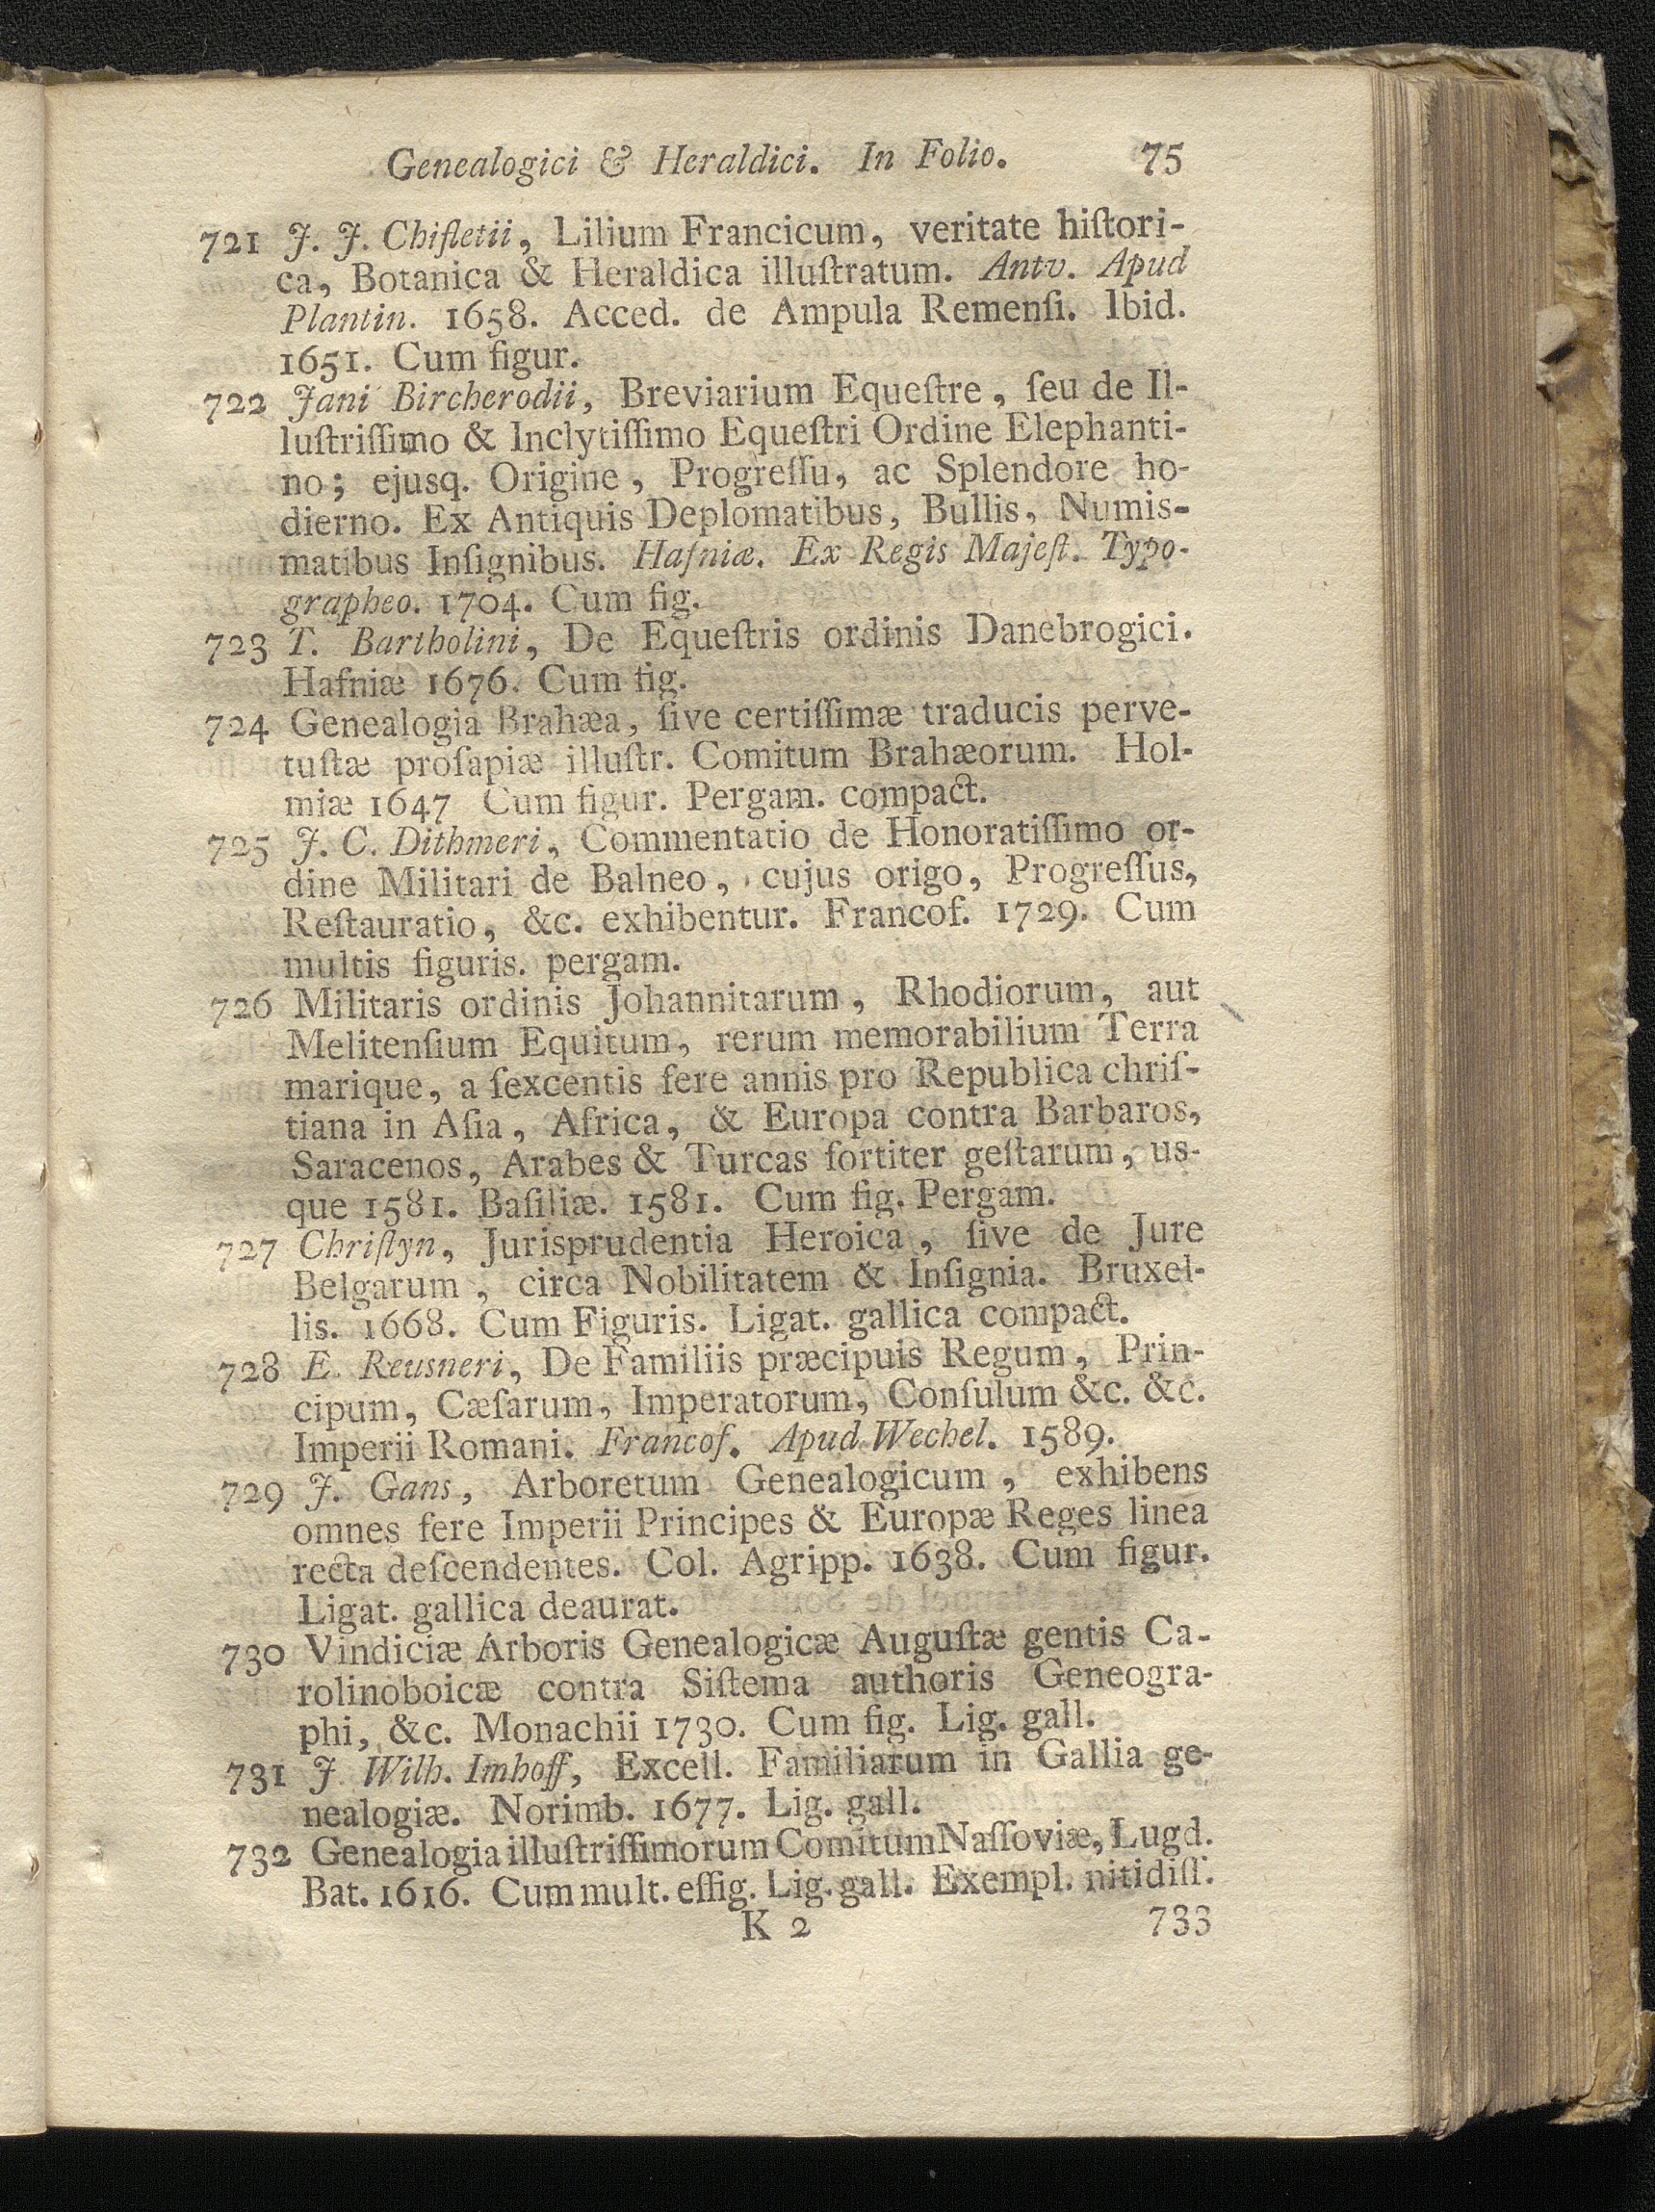 Genealogici & Heraldici. In Folio. 75
721 J. J. Chifletii, Lilium Francicum, veritate hiſtori-
ca, Botanica & Heraldica illuſtratum. Antv. Apud
Plantin. 1658. Acced. de Ampula Remenſi. Ibid.
1651. Cum figur.
722 Jani Bircherodii, Breviarium Equeſtre, ſeu de Il-
luſtriſſimo & Inclytiſſimo Equeſtri Ordine Elephanti-
no; ejusq. Origine, Progreſſu, ac Splendore ho-
dierno. Ex Antiquis Deplomatibus, Bullis, Numis-
matibus Inſignibus. Hafniæ. Ex Regis Majeſt. Typo-
grapheo. 1704. Cum fig.
723 T. Bartholini, De Equeſtris ordinis Danebrogici.
Hafniæ 1676. Cum fig.
724 Genealogia Brahæa, ſive certiſſimæ traducis perve-
tuſtæ proſapiæ illuſtr. Comitum Brahæorum. Hol-
miæ 1647 Cum figur. Pergam. compact.
725 J. C. Dithmeri, Commentatio de Honoratiſſimo or-
dine Militari de Balneo, cujus origo, Progreſſus,
Reſtauratio, &c. exhibentur. Francof. 1729. Cum
multis figuris. pergam.
726 Militaris ordinis Johannitarum, Rhodiorum, aut
Melitenſium Equitum, rerum memorabilium Terra
marique, a ſexcentis fere annis pro Republica chriſ-
tiana in Aſia, Africa, & Europa contra Barbaros,
Saracenos, Arabes & Turcas fortiter geſtarum, us-
que 1581. Baſiliæ. 1581. Cum fig. Pergam.
727 Chriſtyn, Jurisprudentia Heroica, ſive de Jure
Belgarum, circa Nobilitatem & Inſignia. Bruxel-
lis. 1668. Cum Figuris. Ligat. gallica compact.
728 E. Reusneri, De Familiis præcipuis Regum, Prin-
cipum, Cæſarum, Imperatorum, Conſulum &c. &c.
Imperii Romani. Francof. Apud Wechel. 1589.
729 J. Gans, Arboretum Genealogicum, exhibens
omnes fere Imperii Principes & Europæ Reges linea
recta deſcendentes. Col. Agripp. 1638. Cum figur.
Ligat. gallica deaurat.
730 Vindiciæ Arboris Genealogicæ Auguſtæ gentis Ca-
rolinoboicæ contra Siſtema authoris Geneogra-
phi, &c. Monachii 1730. Cum fig. Lig. gall.
731 J. Wilh. Imhoff, Excell. Familiarum in Gallia ge-
nealogiæ. Norimb. 1677. Lig. gall.
732 Genealogia illuſtriſſimorum Comitum Naſſoviæ, Lugd.
Bat. 1616. Cum mult. effig. Lig. gall. Exempl. nitidiſſ.
K 2 733